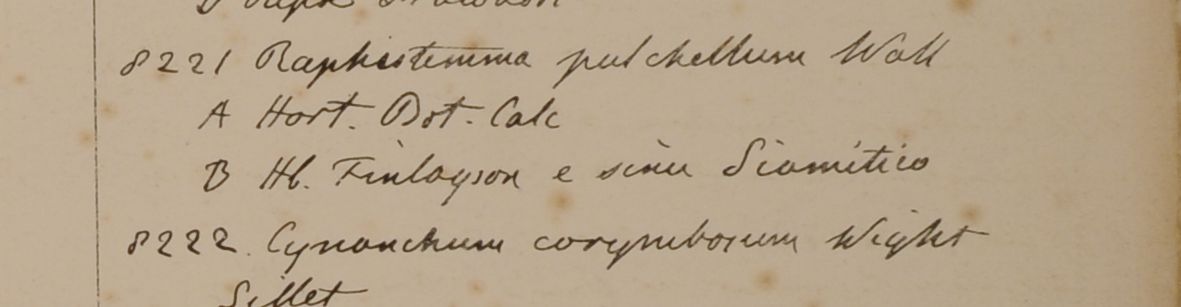 8221 Raphistemma pulchellum Wall
A Hort. Bot. Calc
B Hb. Finlayson e sinu Siamitico
8222. Cynanchum corymbosum Wight
Sillet